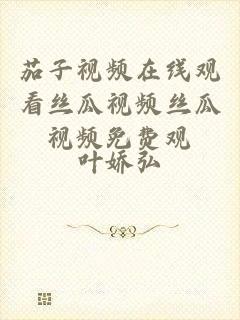 茄子视频在线观
看丝瓜视频丝瓜
视频免费观
叶娇弘